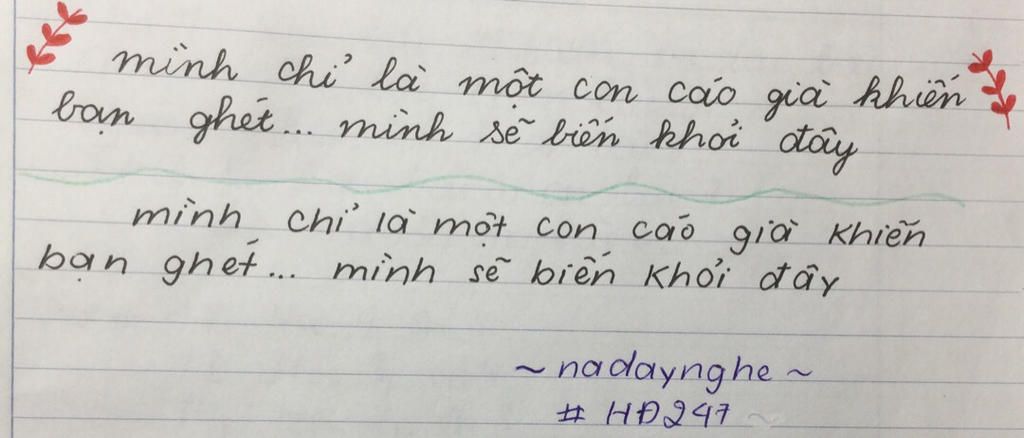 mình chỉ là một con cáo già khiến
bạn ghét... mình sẽ biến khỏi đây
mình chỉ là một con cáo già khiến
bạn ghét... mình sẽ biến khỏi đây
~ nadaynghe ~
# HĐ247